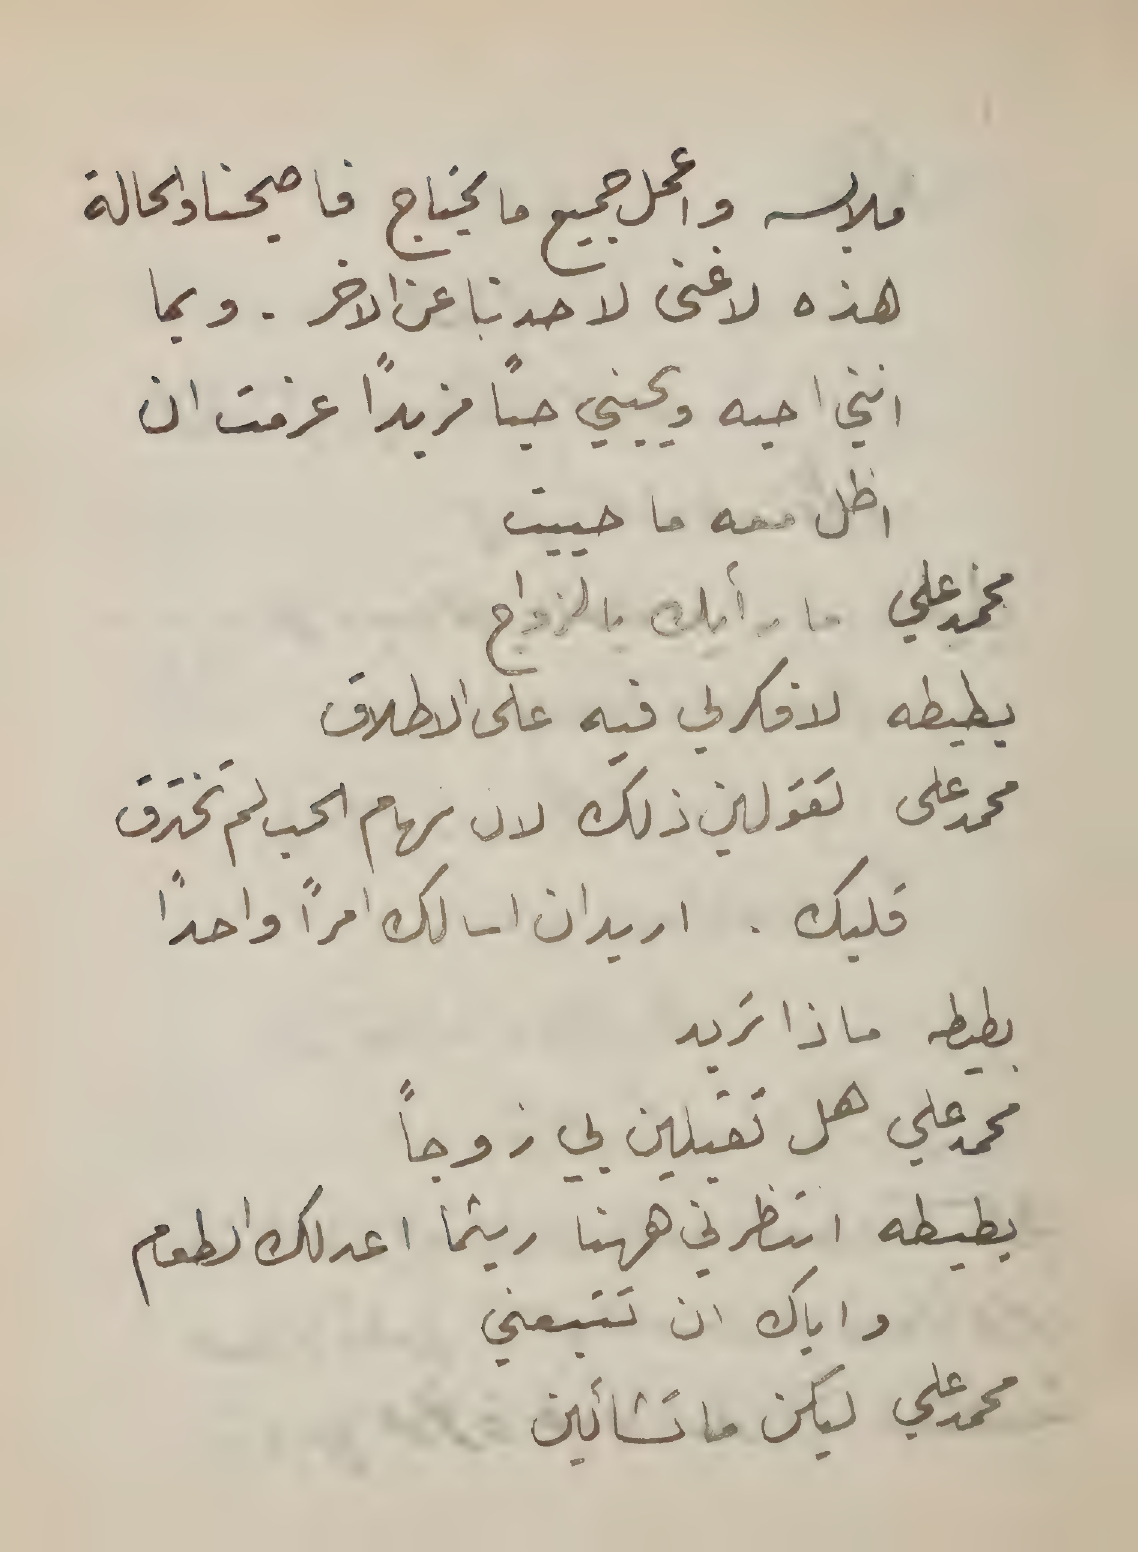 ملابسه واعمل جميع ما يحتاج فاصبحنا والحالة
هذه لا غنى لاحدنا عن الاخر . وبما
انني احبه ويحبني حباً مزيداً عزمت ان
اظل معه ما حييت
محمد علي ما رأيك بالزواج
بطيطه لا فكر لي فيه على الاطلاق
محمد على تقولين ذلك لان سهام الحب لم تخترق
قلبك . اريد ان اسالك امراً واحداً
بطيطه ماذا تريد
محمد علي هل تقبلين بي زوجاً
بطيطه انتظرني ههنا ريثما اعد لك الطعام
واياك ان تتبعني
محمد علي ليكن ما تشائين